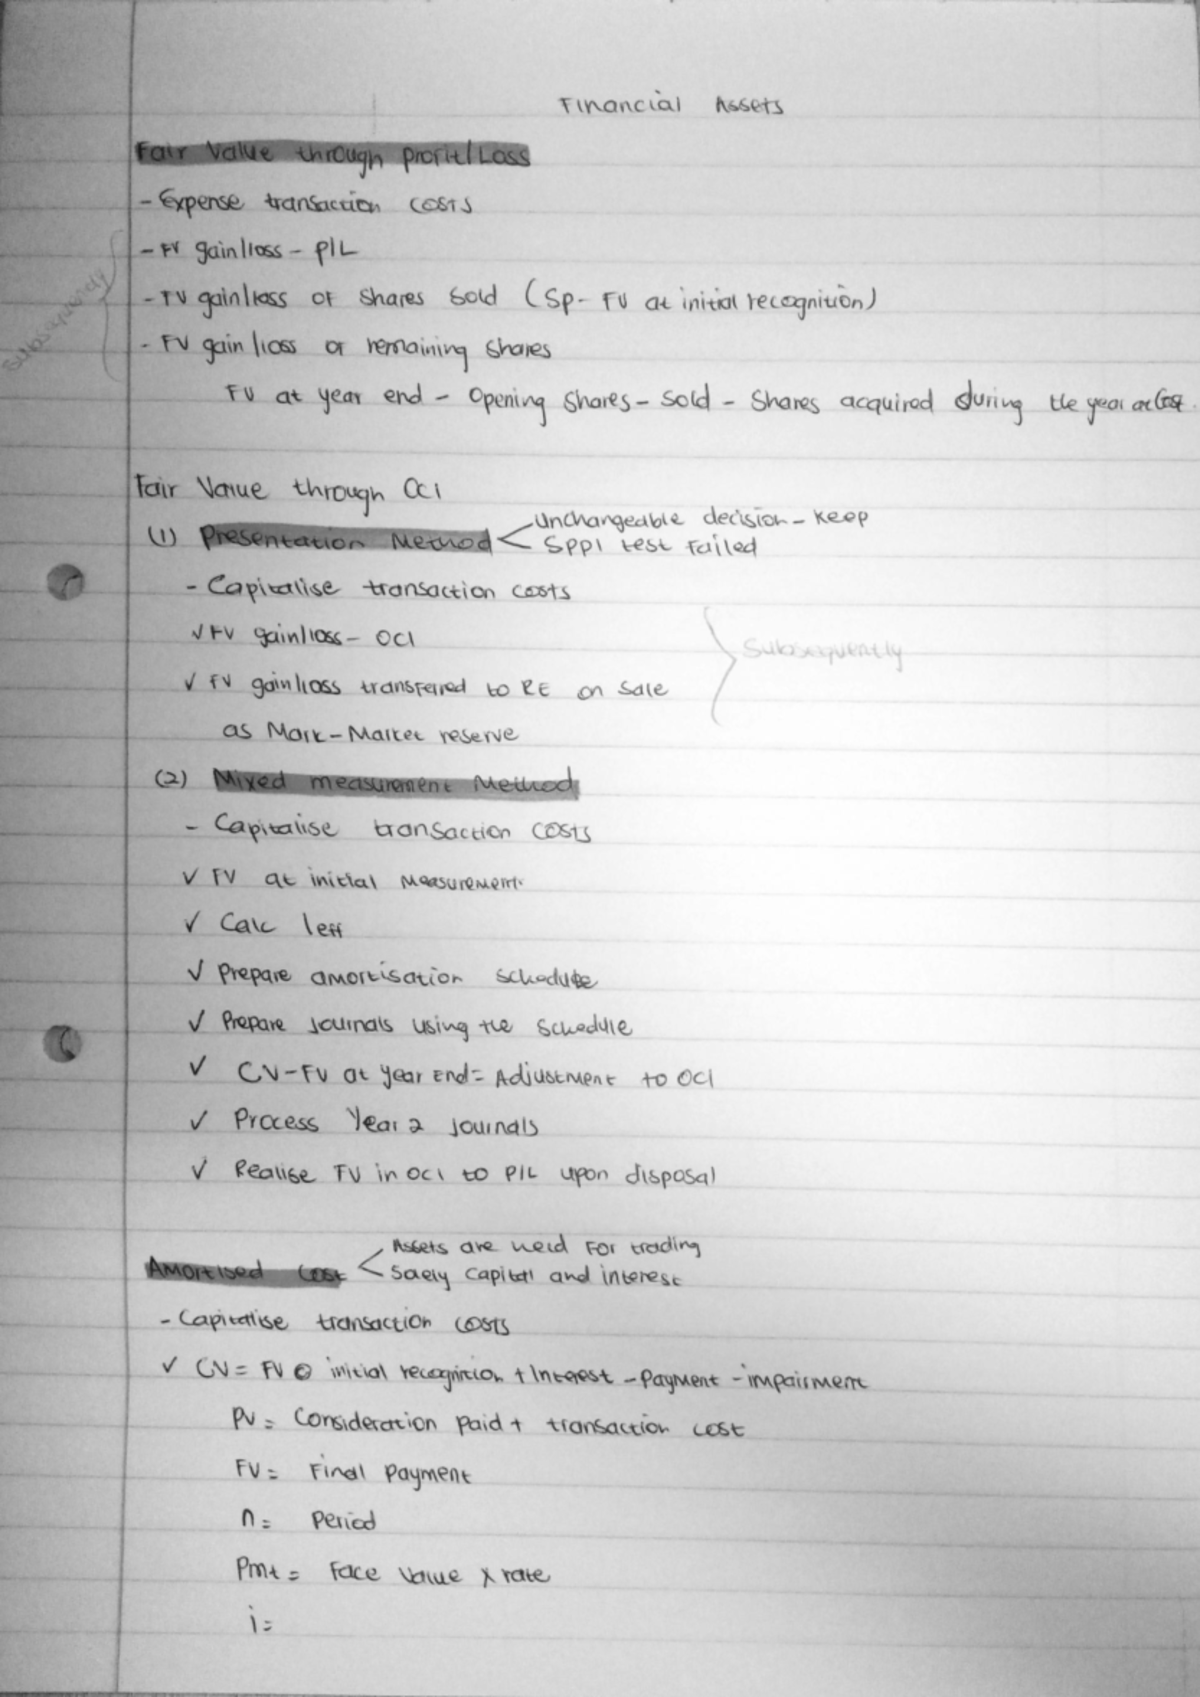 Financial Assets
Fair Value through profit/Loss
- Expense transaction costs
- FV gain/loss - P/L
- FV gain/loss of shares sold (Sp - FV at initial recognition)
- FV gain/loss of remaining shares
FV at year end - Opening shares - sold - shares acquired during the year at Cost.
Subsequently
Fair Value through OCI
(1) Presentation Method
Unchangeable decision - keep
SPPI test Failed
- Capitalise transaction costs
✓ FV gain/loss - OCI
✓ FV gain/loss transferred to RE on sale
as Mark-Market reserve
Subsequently
(2) Mixed measurement Method
- Capitalise transaction costs
✓ FV at initial measurement.
✓ Calc Ieff
✓ Prepare amortisation schedule
✓ Prepare journals using the schedule
✓ CV-FV at year end = Adjustment to OCI
✓ Process Year 2 journals
✓ Realise FV in OCI to P/L upon disposal
Amortised Cost
Assets are held For trading
Solely capital and interest
- Capitalise transaction costs
✓ CV = FV @ initial recognition + Interest - Payment - impairment
PV = Consideration paid + transaction cost
FV = Final payment
n = Period
Pmt = Face value x rate
i =